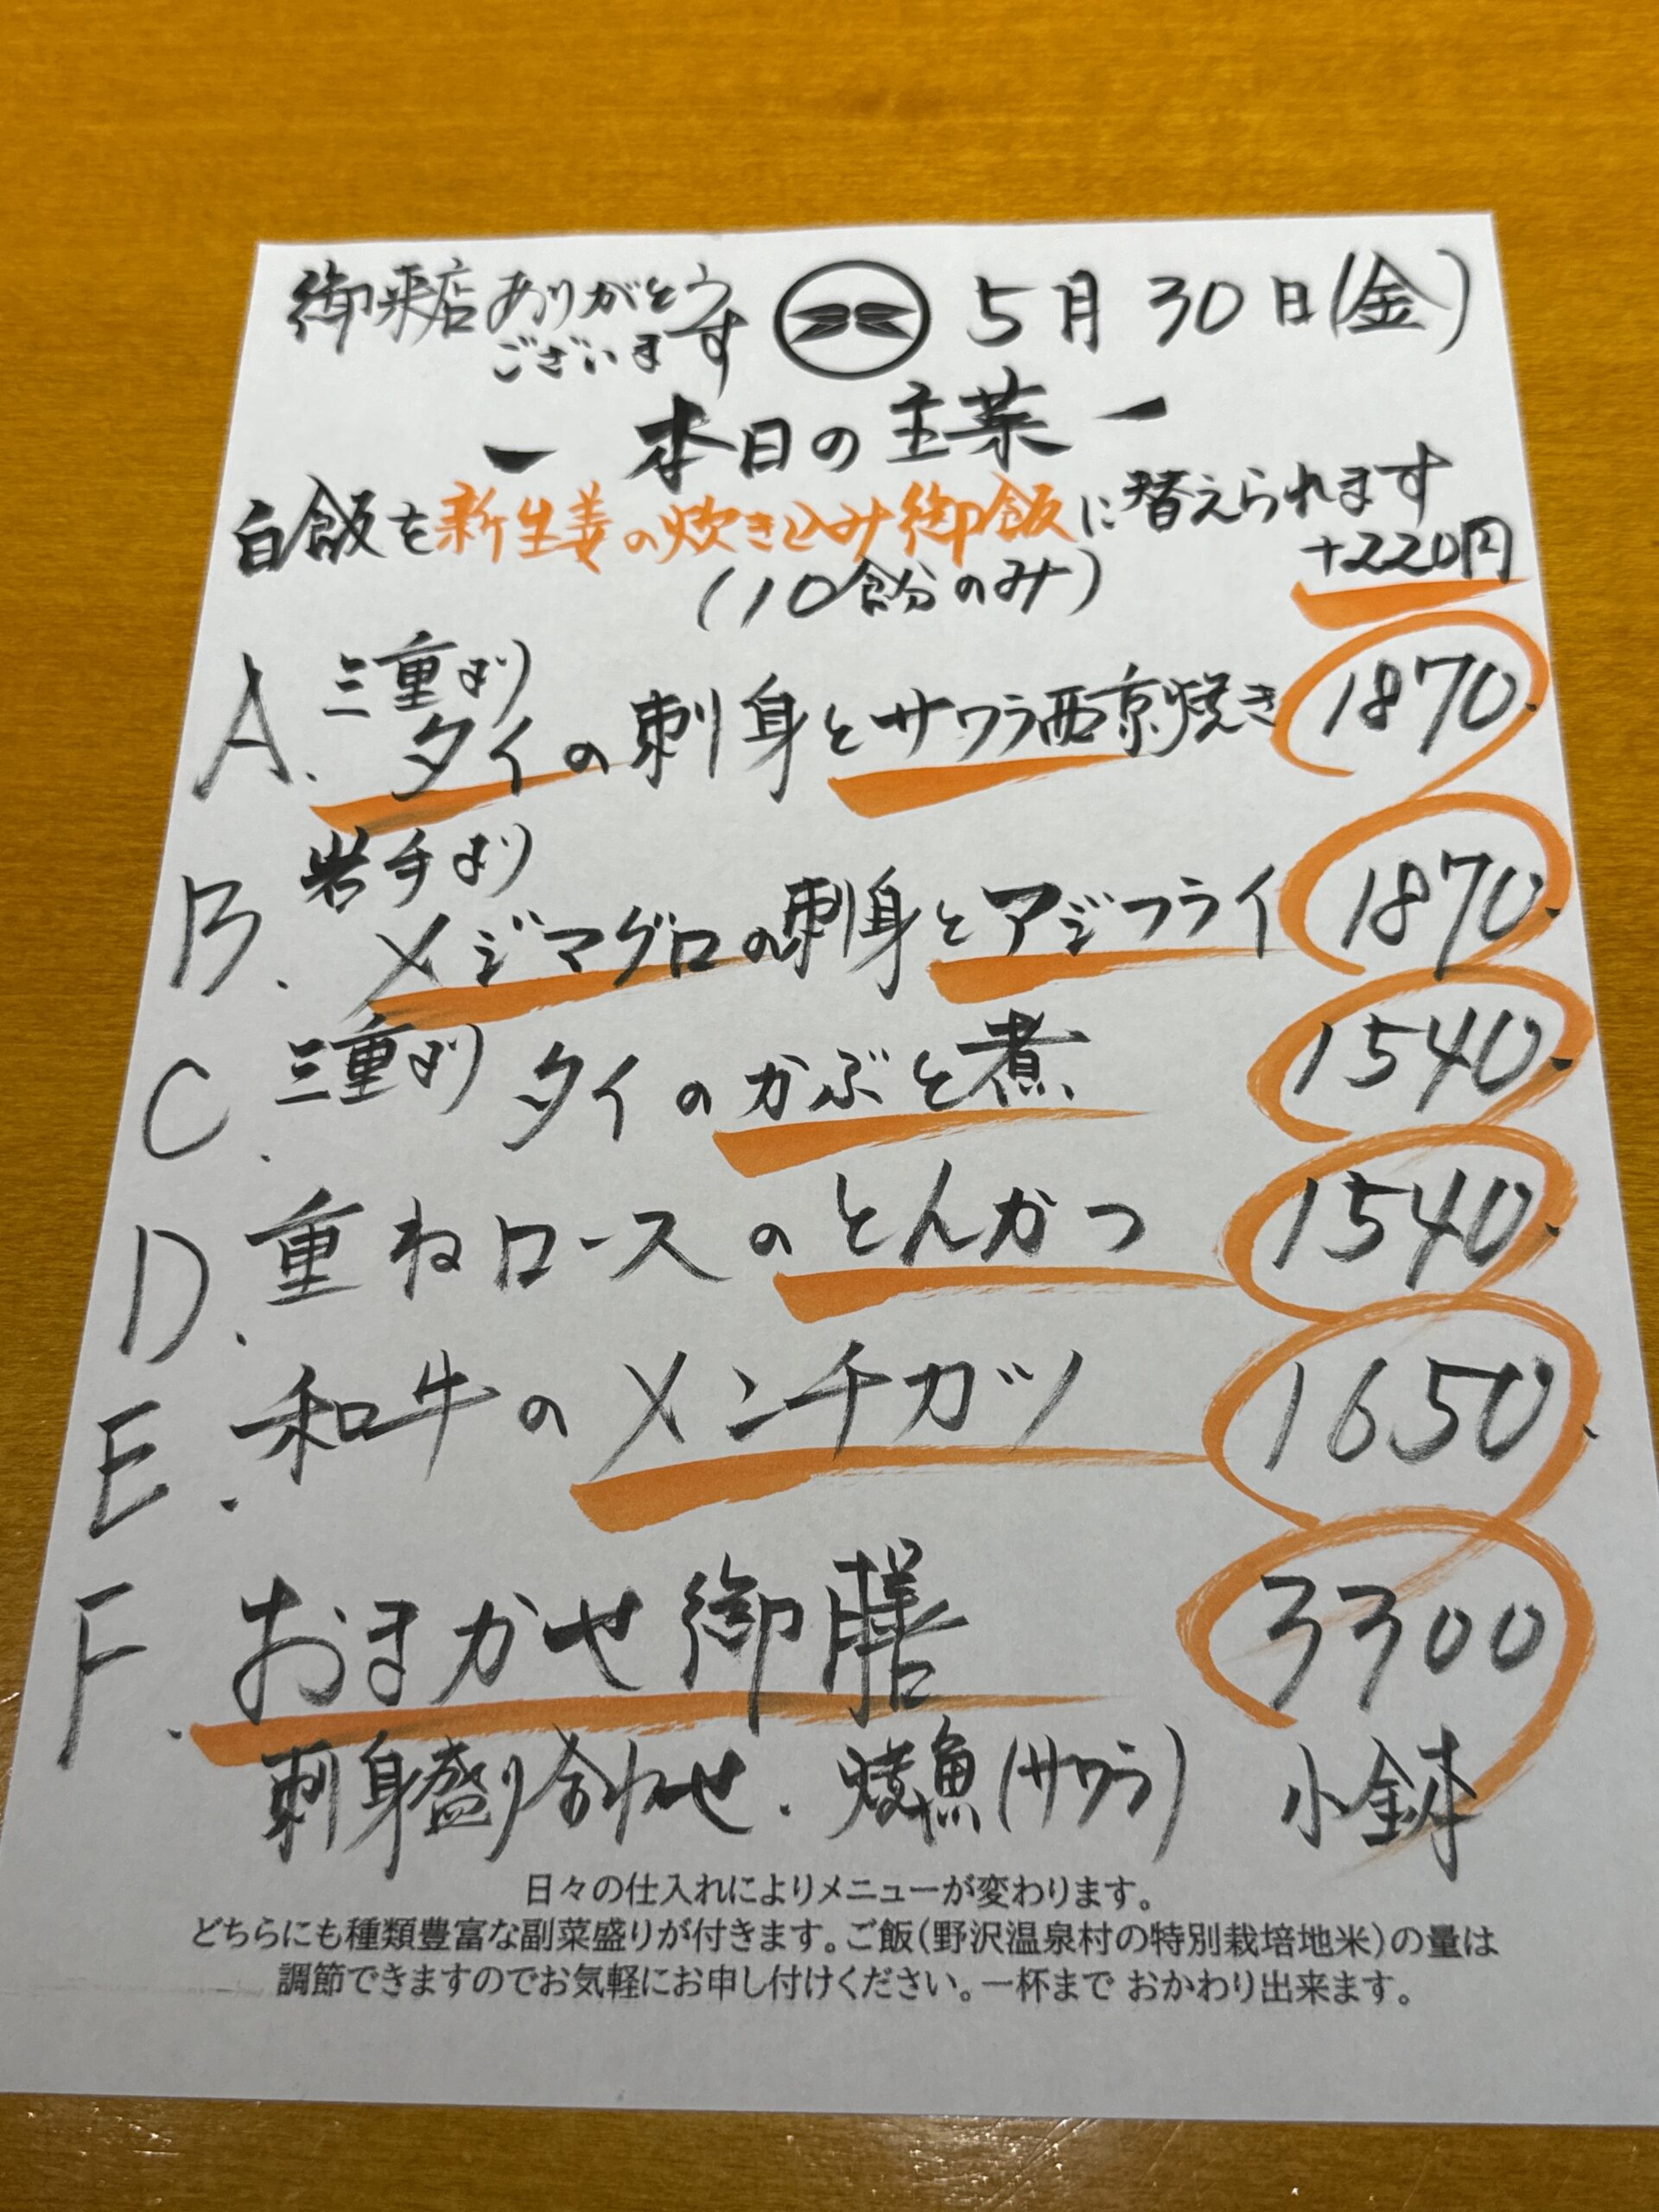 御来店ありがとう
ございます
5月30日(金)
ー 本日の主菜 ー
白飯を新生姜の炊き込み御飯に替えられます
+220円
(10食分のみ)
A. 三重より
タイの刺身とサワラ西京焼き 1870.
B. 岩手より
メジマグロの刺身とアジフライ 1870.
C. 三重より タイのかぶと煮 1540.
D. 重ねロースのとんかつ 1540.
E. 和牛のメンチカツ 1650.
F. おまかせ御膳 3300
刺身盛り合わせ. 焼魚(サワラ) 小鉢
日々の仕入れによりメニューが変わります。
どちらにも種類豊富な副菜盛りが付きます。ご飯(野沢温泉村の特別栽培地米)の量は
調節できますのでお気軽にお申し付けください。一杯まで おかわり出来ます。